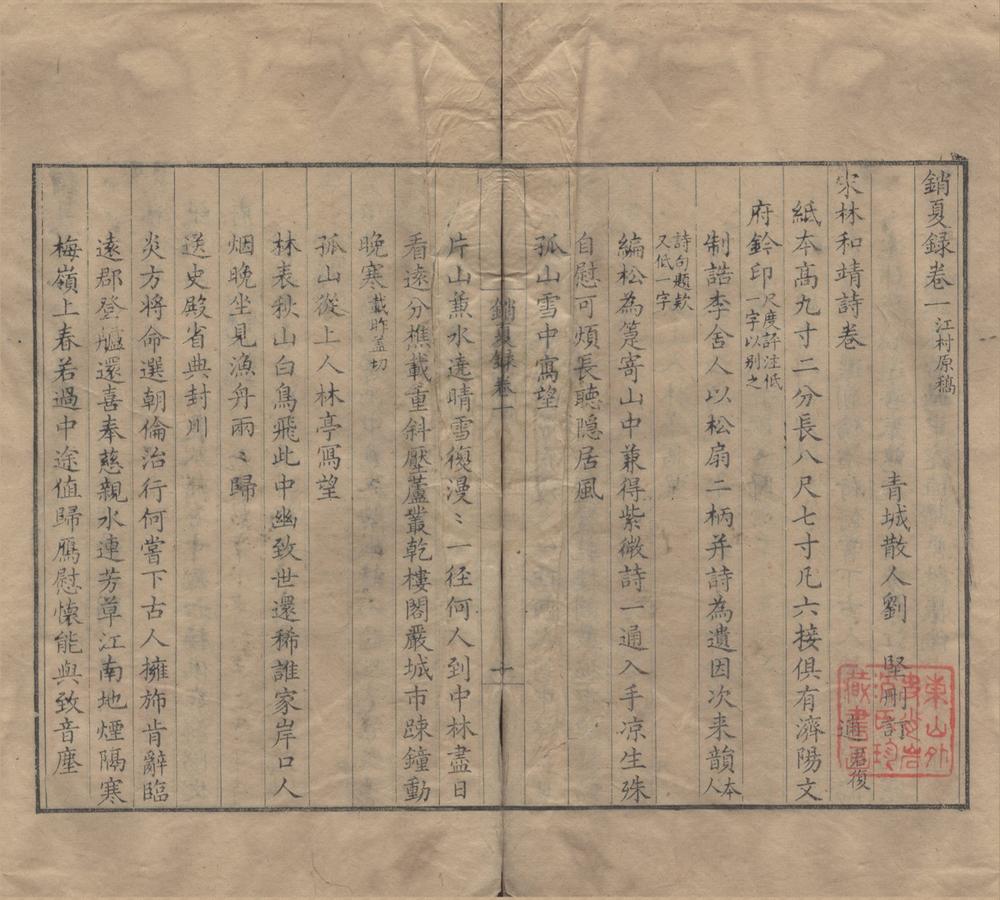 銷夏録卷一江村原稿
青城散人劉　堅删訂
宋林和靖詩卷　逋 君復
紙本髙九寸二分長八尺七寸凡六接俱有濟陽文
府鈴印尺度評注低一字以别之
制誥李舍人以松扇二柄并詩為遺因次来韻本人
詩句題欵又低一字
編松為箑寄山中兼得紫微詩一通入手凉生殊
自慰可煩長聽隐居風
孤山雪中寫望
片山兼水遶晴雪復漫〻一径何人到中林盡日
銷夏録卷一
十
看遠分樵載重斜壓葦叢乾樓閣嚴城市踈鐘動
晚寒載昨盖切
孤山從上人林亭寫望
林表秋山白鳥飛此中幽致世還稀誰家岸口人
烟晚坐見漁舟兩〻歸
送史殿省典封川
炎方將命選朝倫治行何當下古人擁斾肯辭臨
遠郡登艫還喜奉慈親水連芳草江南地煙隔寒
梅嶺上春若過中途值歸鴈慰懐能與致音塵